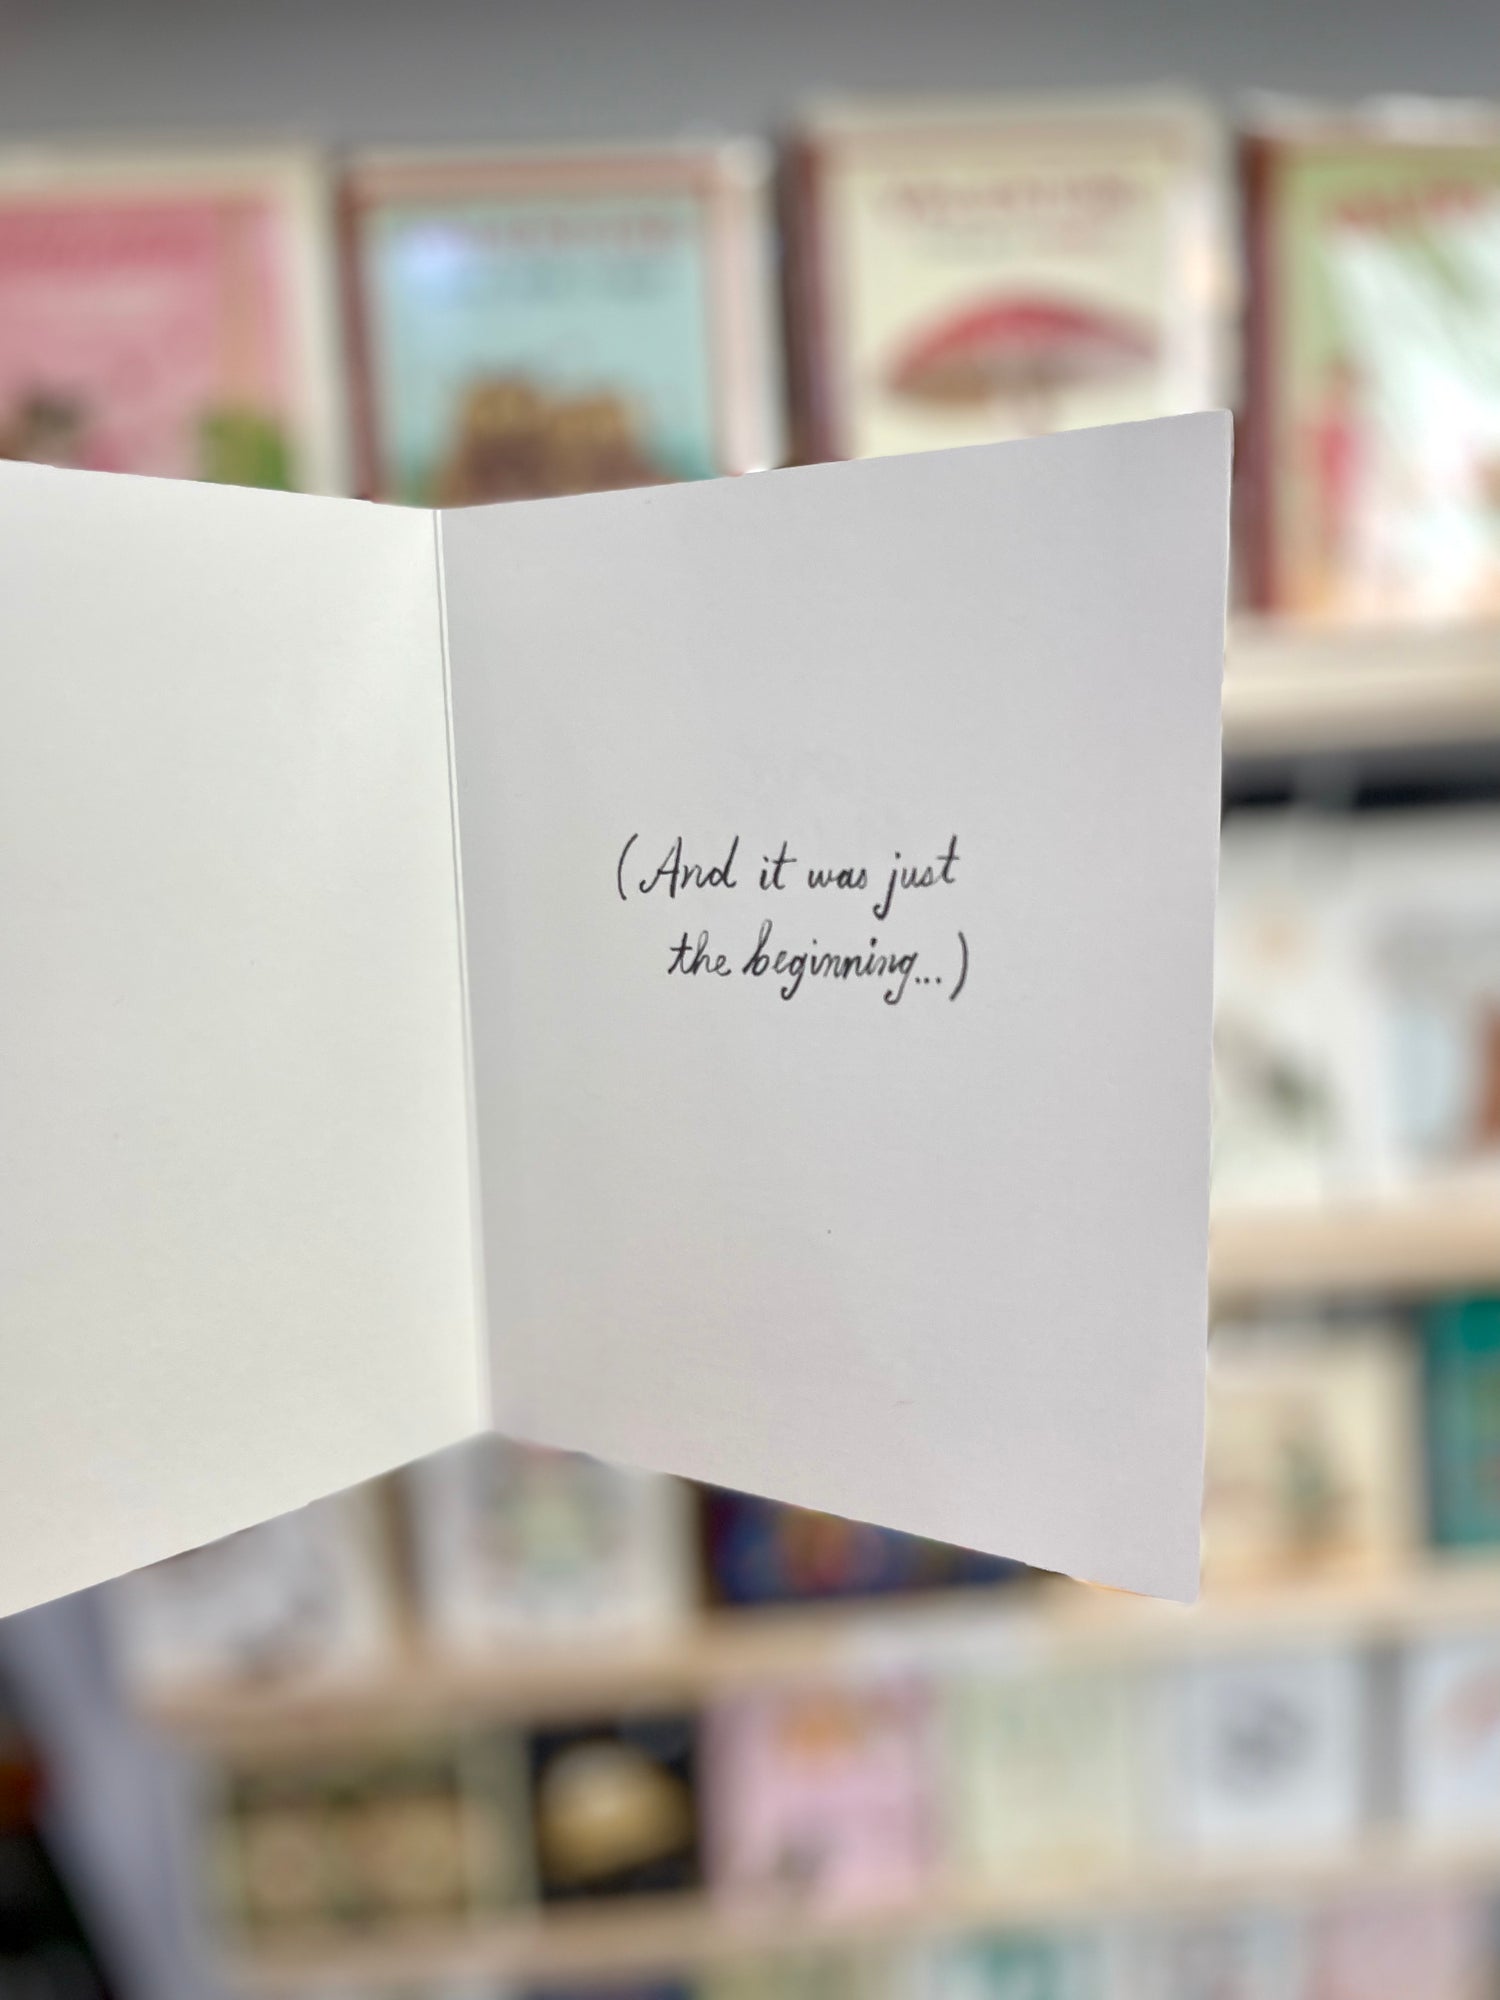 (And it was just
the beginning...)